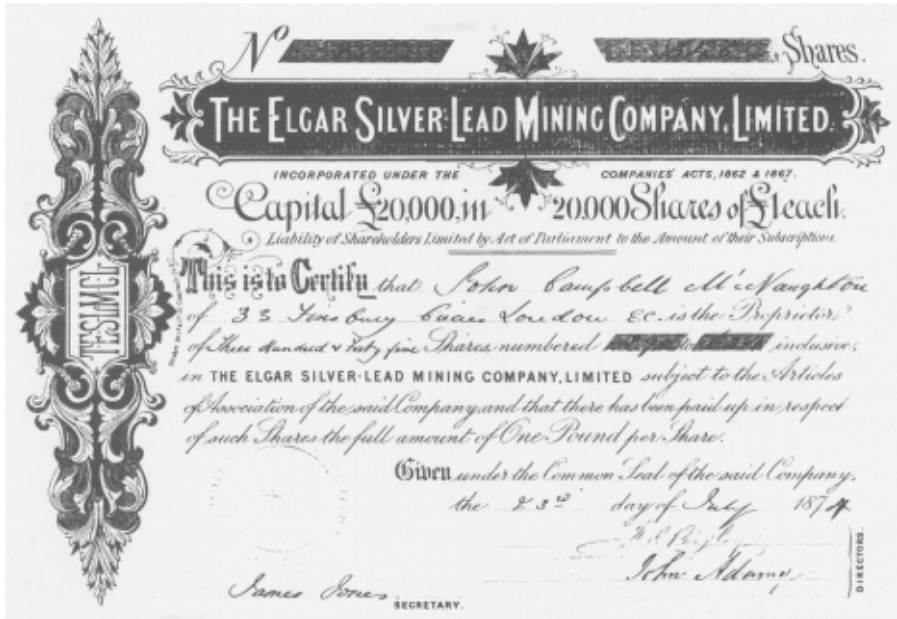 No Shares.
THE ELGAR SILVER-LEAD MINING COMPANY, LIMITED.
INCORPORATED UNDER THE COMPANIES' ACTS, 1862 & 1867.
Capital £20,000, in 20.000 Shares of £1 each.
Liability of Shareholders Limited by Act of Parliament to the Amount of their Subscriptions.
This is to Certify that John Campbell McNaughton
of 33 Finsbury London E.C. is the Proprietor
of Three Hundred & Forty five Shares, numbered inclusive,
in THE ELGAR SILVER-LEAD MINING COMPANY, LIMITED subject to the Articles
of Association of the said Company, and that there has been paid up in respect
of such Shares the full amount of One Pound per Share.
Given under the Common Seal of the said Company,
the 23rd day of July 1874
John Adams
James Jones
SECRETARY.
DIRECTORS.
TESLMCL